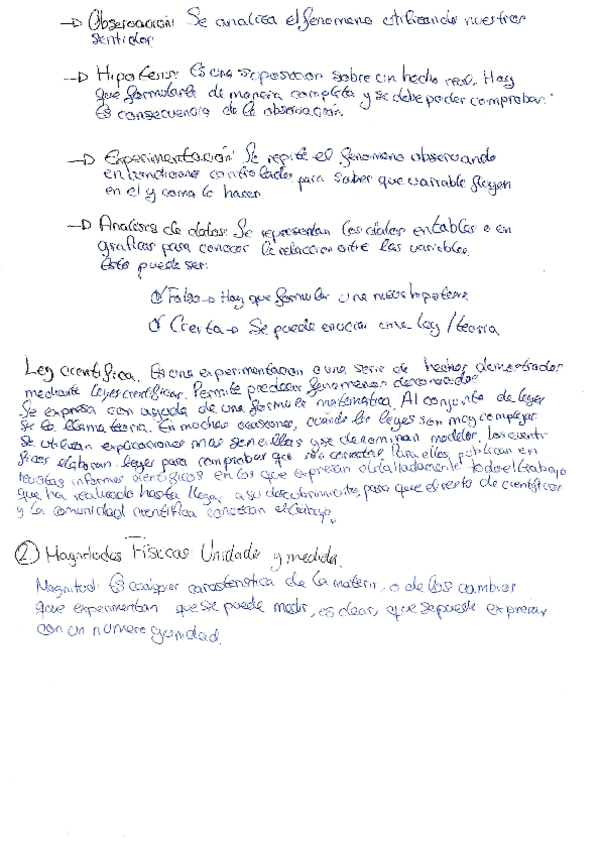 → Observación: Se analiza el fenomeno utilizando nuestros
sentidos
→ Hipotesis: Es una suposicion sobre un hecho real. Hay
que formularla de manera completa y se debe poder comprobar.
Es consecuencia de la observación.
→ Experimentación: Se repite el fenomeno observando
en condiciones controladas para saber que variable fluyen
en el y como lo hacen
→ Analisis de datos: Se representan los datos en tablas o en
graficas para conocer la relacion entre las variables.
Esto puede ser:
Falso → Hay que formular una nueva hipotesis
Cierta → Se puede enunciar una ley / teoria
Ley cientifica. Es una experimentacion o una serie de hechos demostrados
mediante leyes cientificas. Permite predecir fenomenos desconocidos
Se expresa con ayuda de una formula matematica. Al conjunto de leyes
se le llama teoria. En muchas ocasiones, cuando las leyes son muy complejas
se utilizan explicaciones mas sencillas y se denominan modelos. Los cienti-
ficos elaboran leyes para comprobar que son correctas. Para ellos, publican en
revistas informes cientificos en los que expresan detalladamente todo el trabajo
que ha realizado hasta llegar a su descubrimiento, para que el resto de cientificos
y la comunidad cientifica conozcan el trabajo.
② Magnitudes Físicas. Unidades y medida.
Magnitud: Es cualquier caracteristica de la materia, o de los cambios
que experimentan que se puede medir, es decir, que se puede expresar
con un numero y unidad.